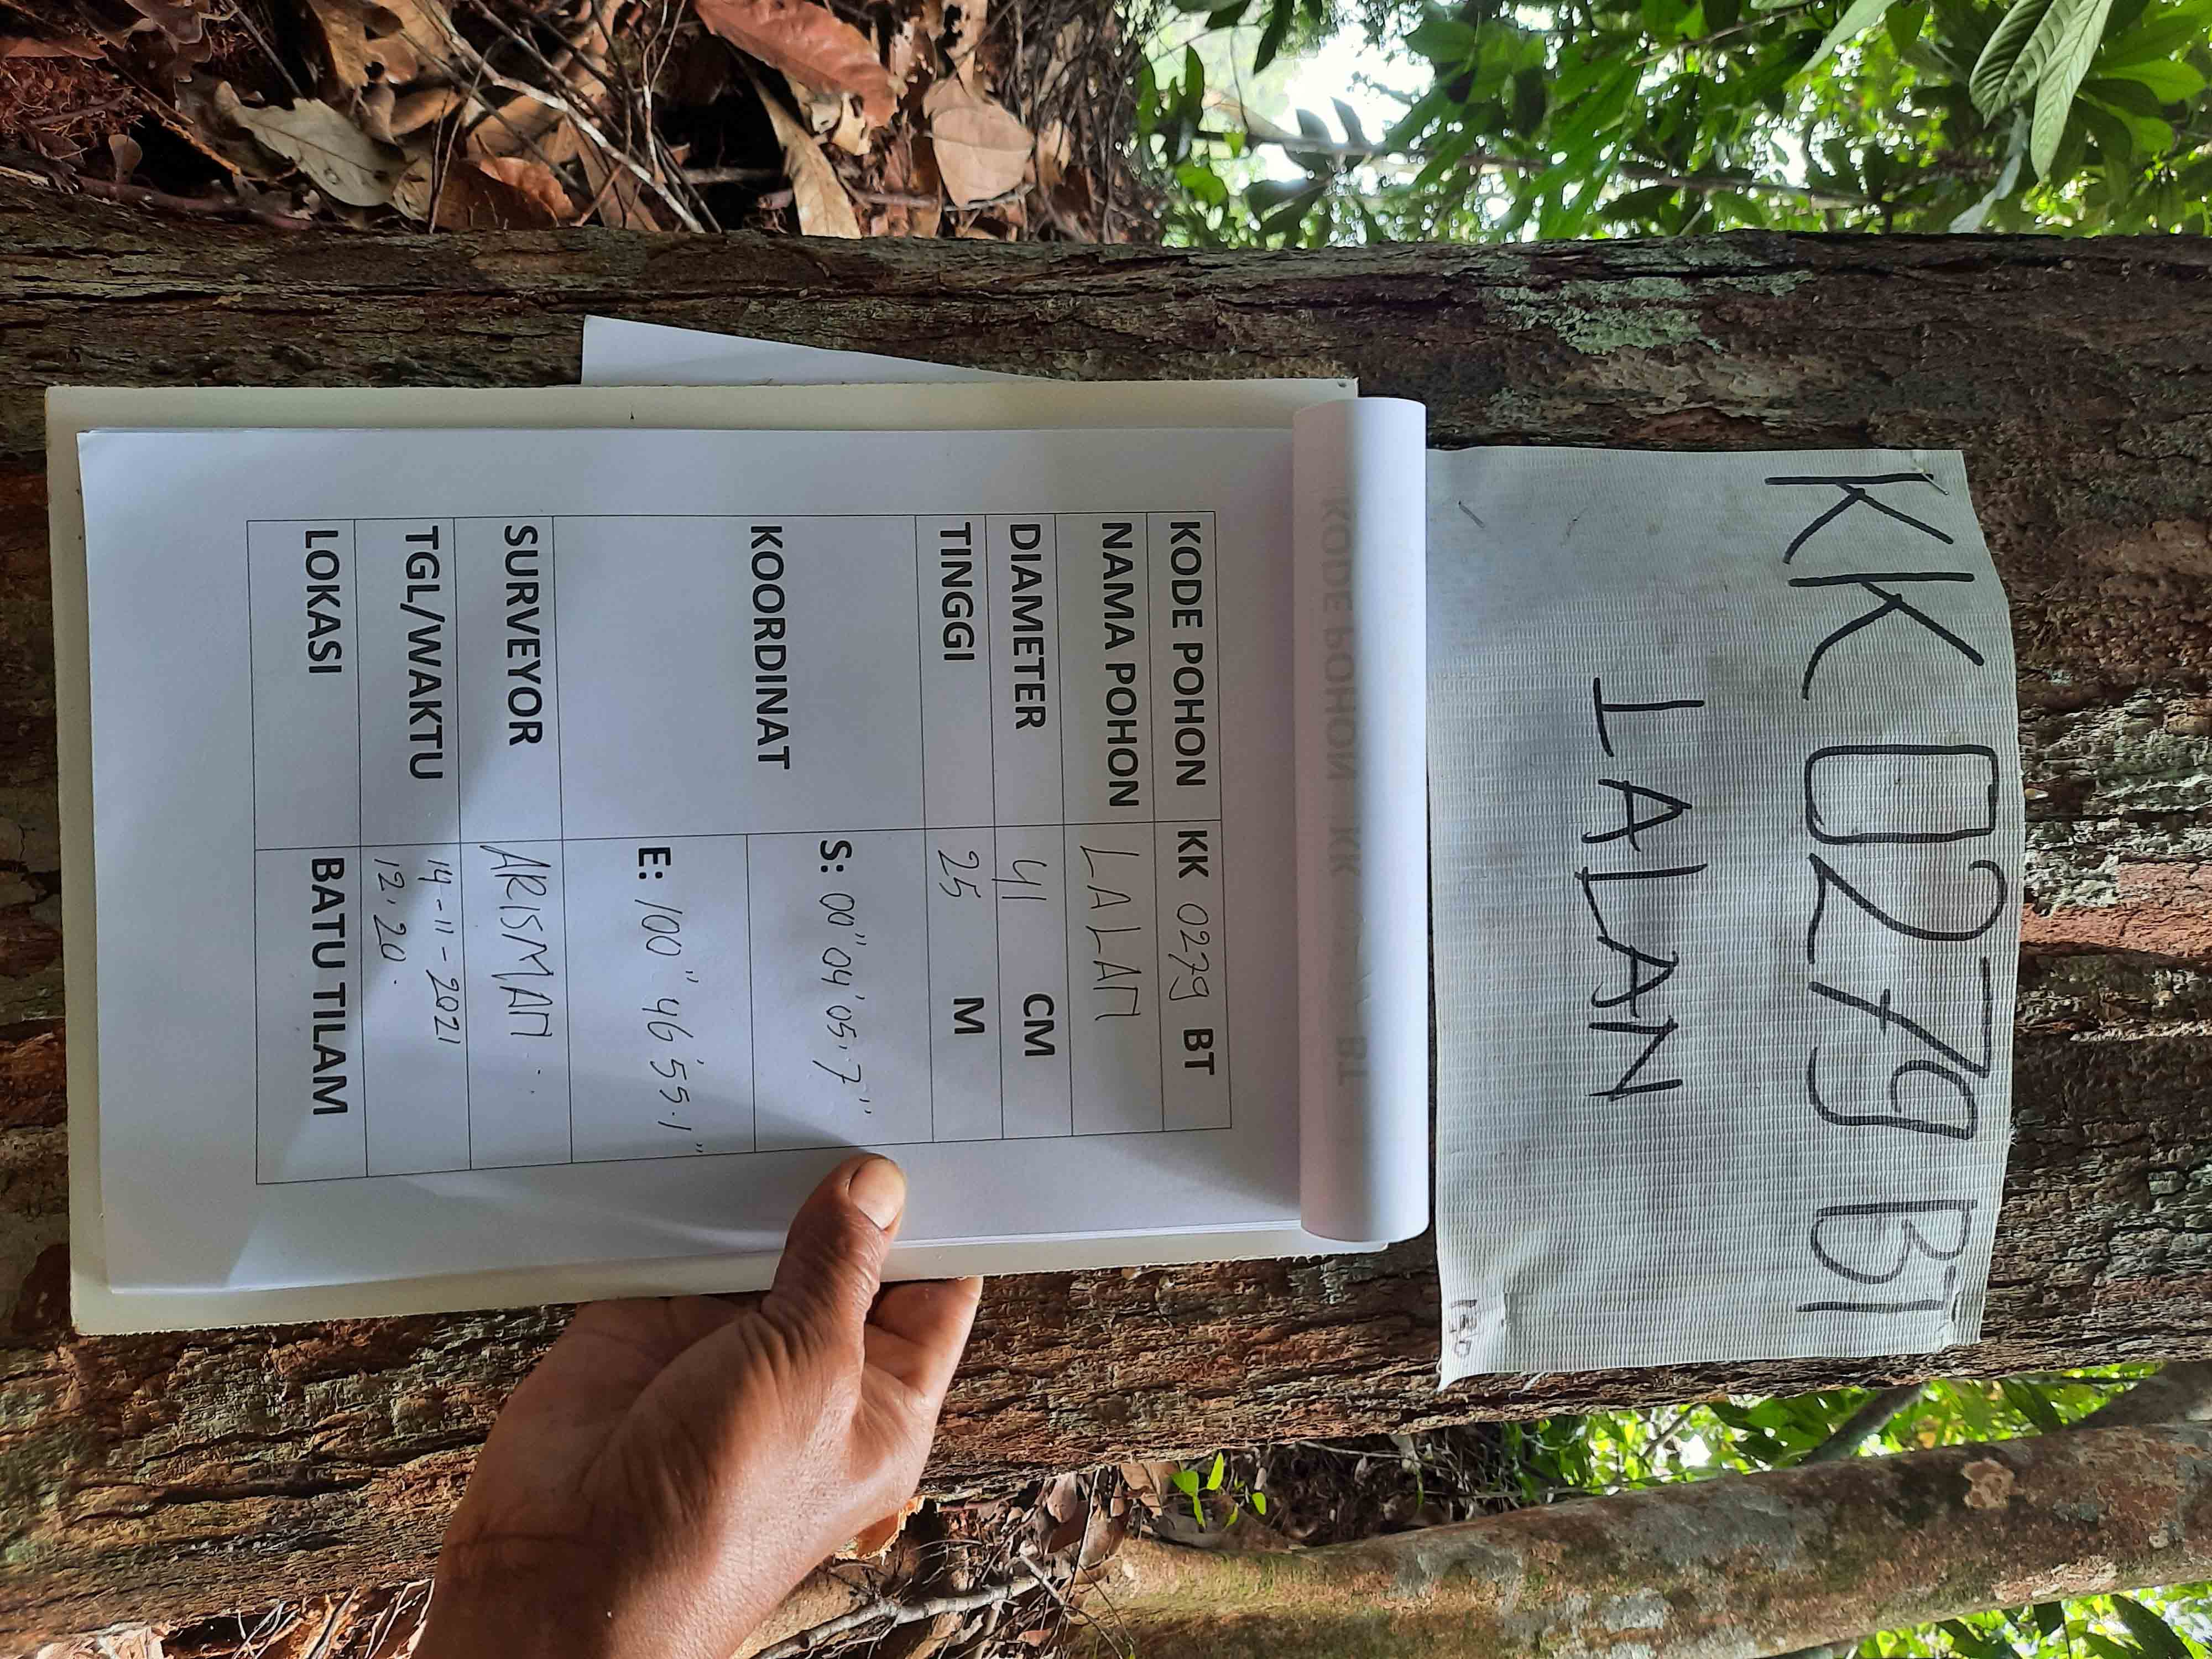 KK 0279 BT
LALAN
KODE POHON KK 0279 BT
NAMA POHON LALAN
DIAMETER 41 CM
TINGGI 25 M
KOORDINAT
S: 00" 04' 05.7"
E: 100" 46' 55.1"
SURVEYOR ARISMAN
TGL/WAKTU 14-11-2021
12.20.
LOKASI BATU TILAM